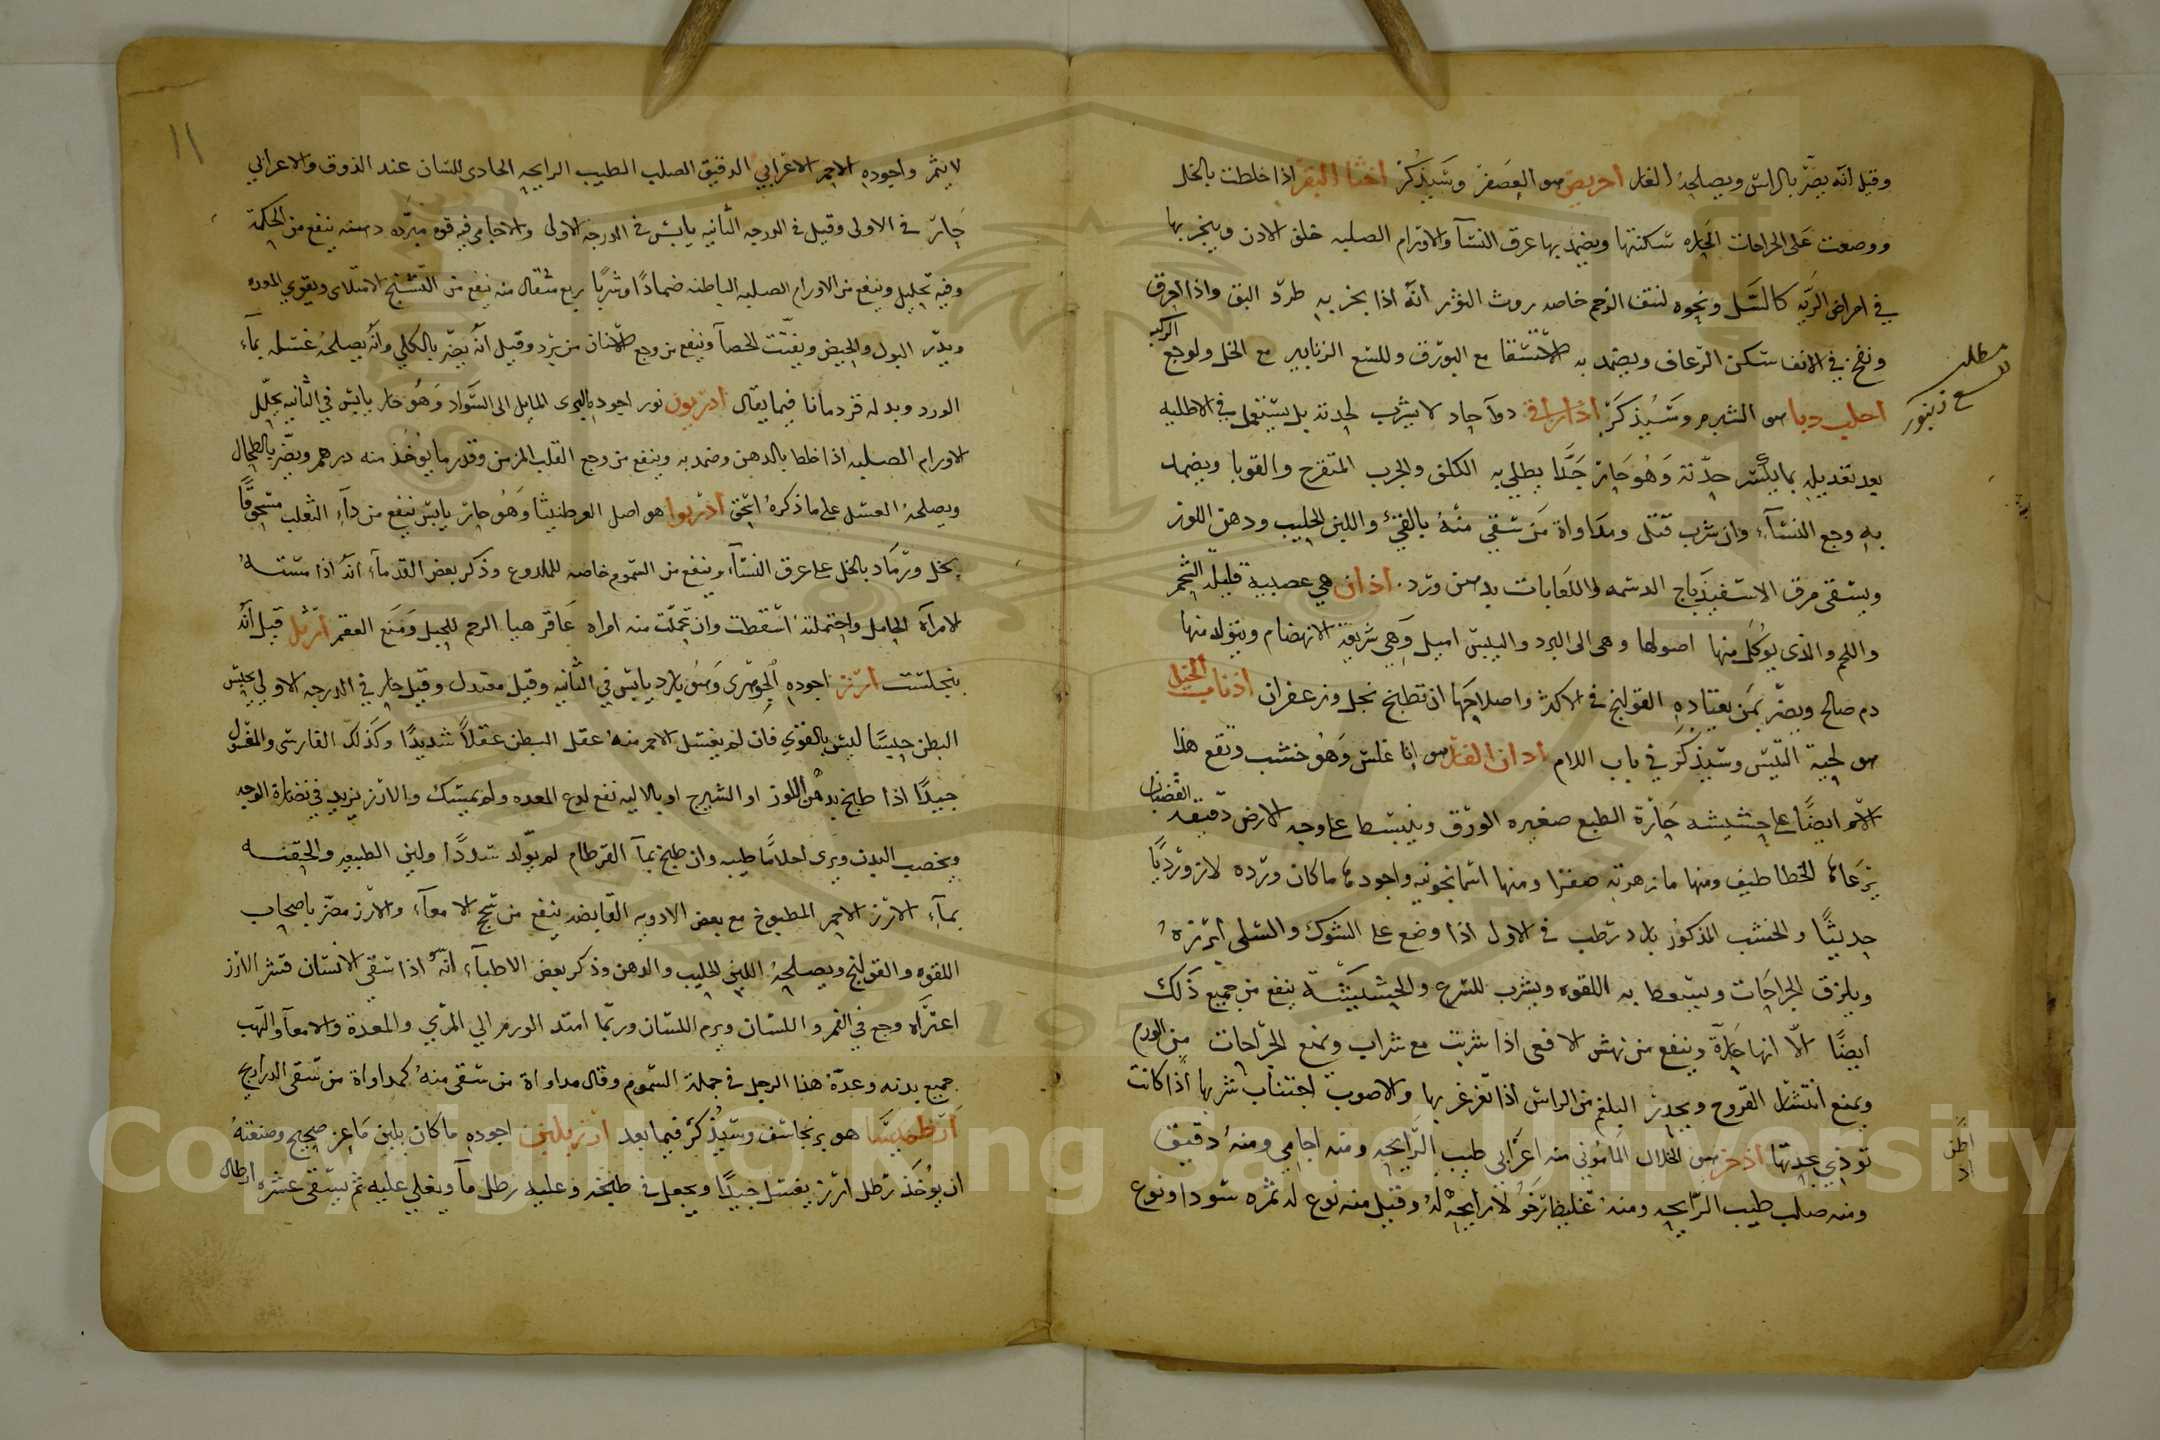 وقيل انه يضر بالراس ويصلحه الغار احريض هو العصفر وسيذكر اخثا البقر اذا خلطت بالخل
ووضعت على الجراحات الحاره سكنتها ويضمد بها عرق النسآ والاورام الصلبه خلف الاذن ويبخر بها
في امراض الريه كالسل ونحوه لنتف الرحم خاصه بروث الثور انه اذا بخر به طرد البق واذا احرق
ونفخ في الانف سكن الرعاف ويضمد به الاستسقا مع البورق وللسع الزنابير مع الخل ولوجع الركبه
مطلب
لسع زنبور
احليب ديا هو الشبرم وسيذكر اذاراقي دوآ حاد لا يشرب لحدته بل يستعمل في الاطليه
بعد تعديله بما يكسر حدته وهو حار جدا يطلى به الكلف والجرب المتقرح والقوبا ويضمد
به وجع النسآء وان شرب قتل ومداواة من سقي منه بالقيء واللبن الحليب ودهن اللوز
ويسقى مرق الاسفيذباج الدسمه واللعابات بدهن ورد. اذان هي عصبية قليلة الشحم
واللحم والذي يوكل منها اصولها وهي الى البرد واليبس اميل وهي سريعة الانهضام ويتولد منها
دم صالح ويضر بمن يعتاده القولنج في الاكثر واصلاحها ان تطبخ بخل وزعفران اذناب الخيل
هو لحية التيس وسيذكر في باب اللام اذان الفار هو انا غلس وهو خشب وتقع هذا
الاسم ايضا على حشيشه حارة الطبع صغيره الورق وينبسط على وجه الارض دقيقه القضبان
يرعاه الخطاطيف ومنها ما زهرته صفرا ومنها اسمانجونيه واجودها ما كان ورده لازورديا
حديثا والخشب المذكور بارد رطب في الاول اذا وضع على الشوك والسلى ابرزه
ويلزق الجراحات ويسعط به اللقوه ويشرب للصرع والحشيشة ينفع من جميع ذلك
ايضا الا انها حارة وينفع من نهش الافعى اذا شربت مع شراب ويمنع الجراحات من الورم
ويمنع انتشار القروح ويحدر البلغم من الراس اذا تغرغر بها والاصوب اجتناب شربها اذا كانت
توذي بحدتها اذخر هو الخلال المامونى منه اعرابي طيب الرايحه ومنه اجامي ومنه دقيق
ومنه صلب طيب الرايحه ومنه غليظ رخو لا رايحة له وقيل منه نوع له ثمره سودا ونوع
١١
لا يثمر واجوده الاحمر الاعرابي الدقيق الصلب الطيب الرايحه الحادى للسان عند الذوق والاعرابي
حار في الاولى وقيل في الدرجه الثانيه يابس في الدرجه الاولى والاجامي فيه قوه مبرده دهنه ينفع من الحكة
وفيه تحليل وينفع من الاورام الصلبه الباطنه ضمادا وشربا ربع مثقال منه ينفع من التشنج الامتلاى ويقوي المعده
ويدر البول والحيض ويفتت الحصآ وينفع من وجع الاسنان من برد وقيل انه يضر بالكلي وانه يصلحه غسله بمآء
الورد وبدله قردمانا فيما يقال اذريون نور اجوده المايل الى السواد وهو حار يابس في الثانيه يحلل
الاورام الصلبه اذا خلط بالدهن وضمد به وينفع من وجع القلب المزمن وقدر ما يوخذ منه درهم ويضر بالطحال
ويصلحه العسل على ما ذكره اسحق اذربوا هو اصل العرطنيثا وهو حار يابس ينفع من دآء الثعلب مسحوقا
بخل ورماد بالخل على عرق النسآء وينفع من السموم خاصه للملدوع وذكر بعض القدمآء انه اذا مسته
الامراة الحامل واحتملته اسقطت وان تحملت منه امراه عاقر هيا الرحم للحبل ومنع العقم ارثل قيل انه
بنجكشت ارز اجوده الجوهرى وهو بارد يابس في الثانيه وقيل معتدل وقيل حار في الدرجه الاولي يحبس
البطن حبسا ليس بالقوي فان لم يغسل الاحمر منه عقل البطن عقلا شديدا وكذلك الفارسى والمغسول
جيدا اذا طبخ بدهن اللوز او الشيرج او بالاليه نفع لدع المعده ولم يمسك والارز يزيد في نضارة الوجه
ويخصب البدن ويرى احلاما طيبه وان طبخ بمآ القرطم لم يولد سددا ولين الطبيعه والحقنه
بمآء الارز الاحمر المطبوخ مع بعض الادويه القابضه ينفع من سحج الامعآء والارز مضر باصحاب
اللقوه والقولنج ويصلحه اللبن الحليب والدهن وذكر بعض الاطبآء انه اذا سقي الانسان قشر الارز
اعتراه وجع في الفم واللسان ويرم اللسان وربما امتد الورم الي المري والمعدة والامعآ والتهب
جميع بدنه وعد هذا الرجل في جملة السموم وقال مداواة من سقى منه كمداواة من سقى الدراريح
ارطميسا هو برنجاسف وسيذكر فيما بعد ارز بلبن اجوده ما كان بلبن ماعز صحيح وصنعته
ان يوخذ رطل ارز يغسل جيدا ويجعل في طنجره وعليه رطل مآ ويغلي عليه ثم يسقى عشره ارطال